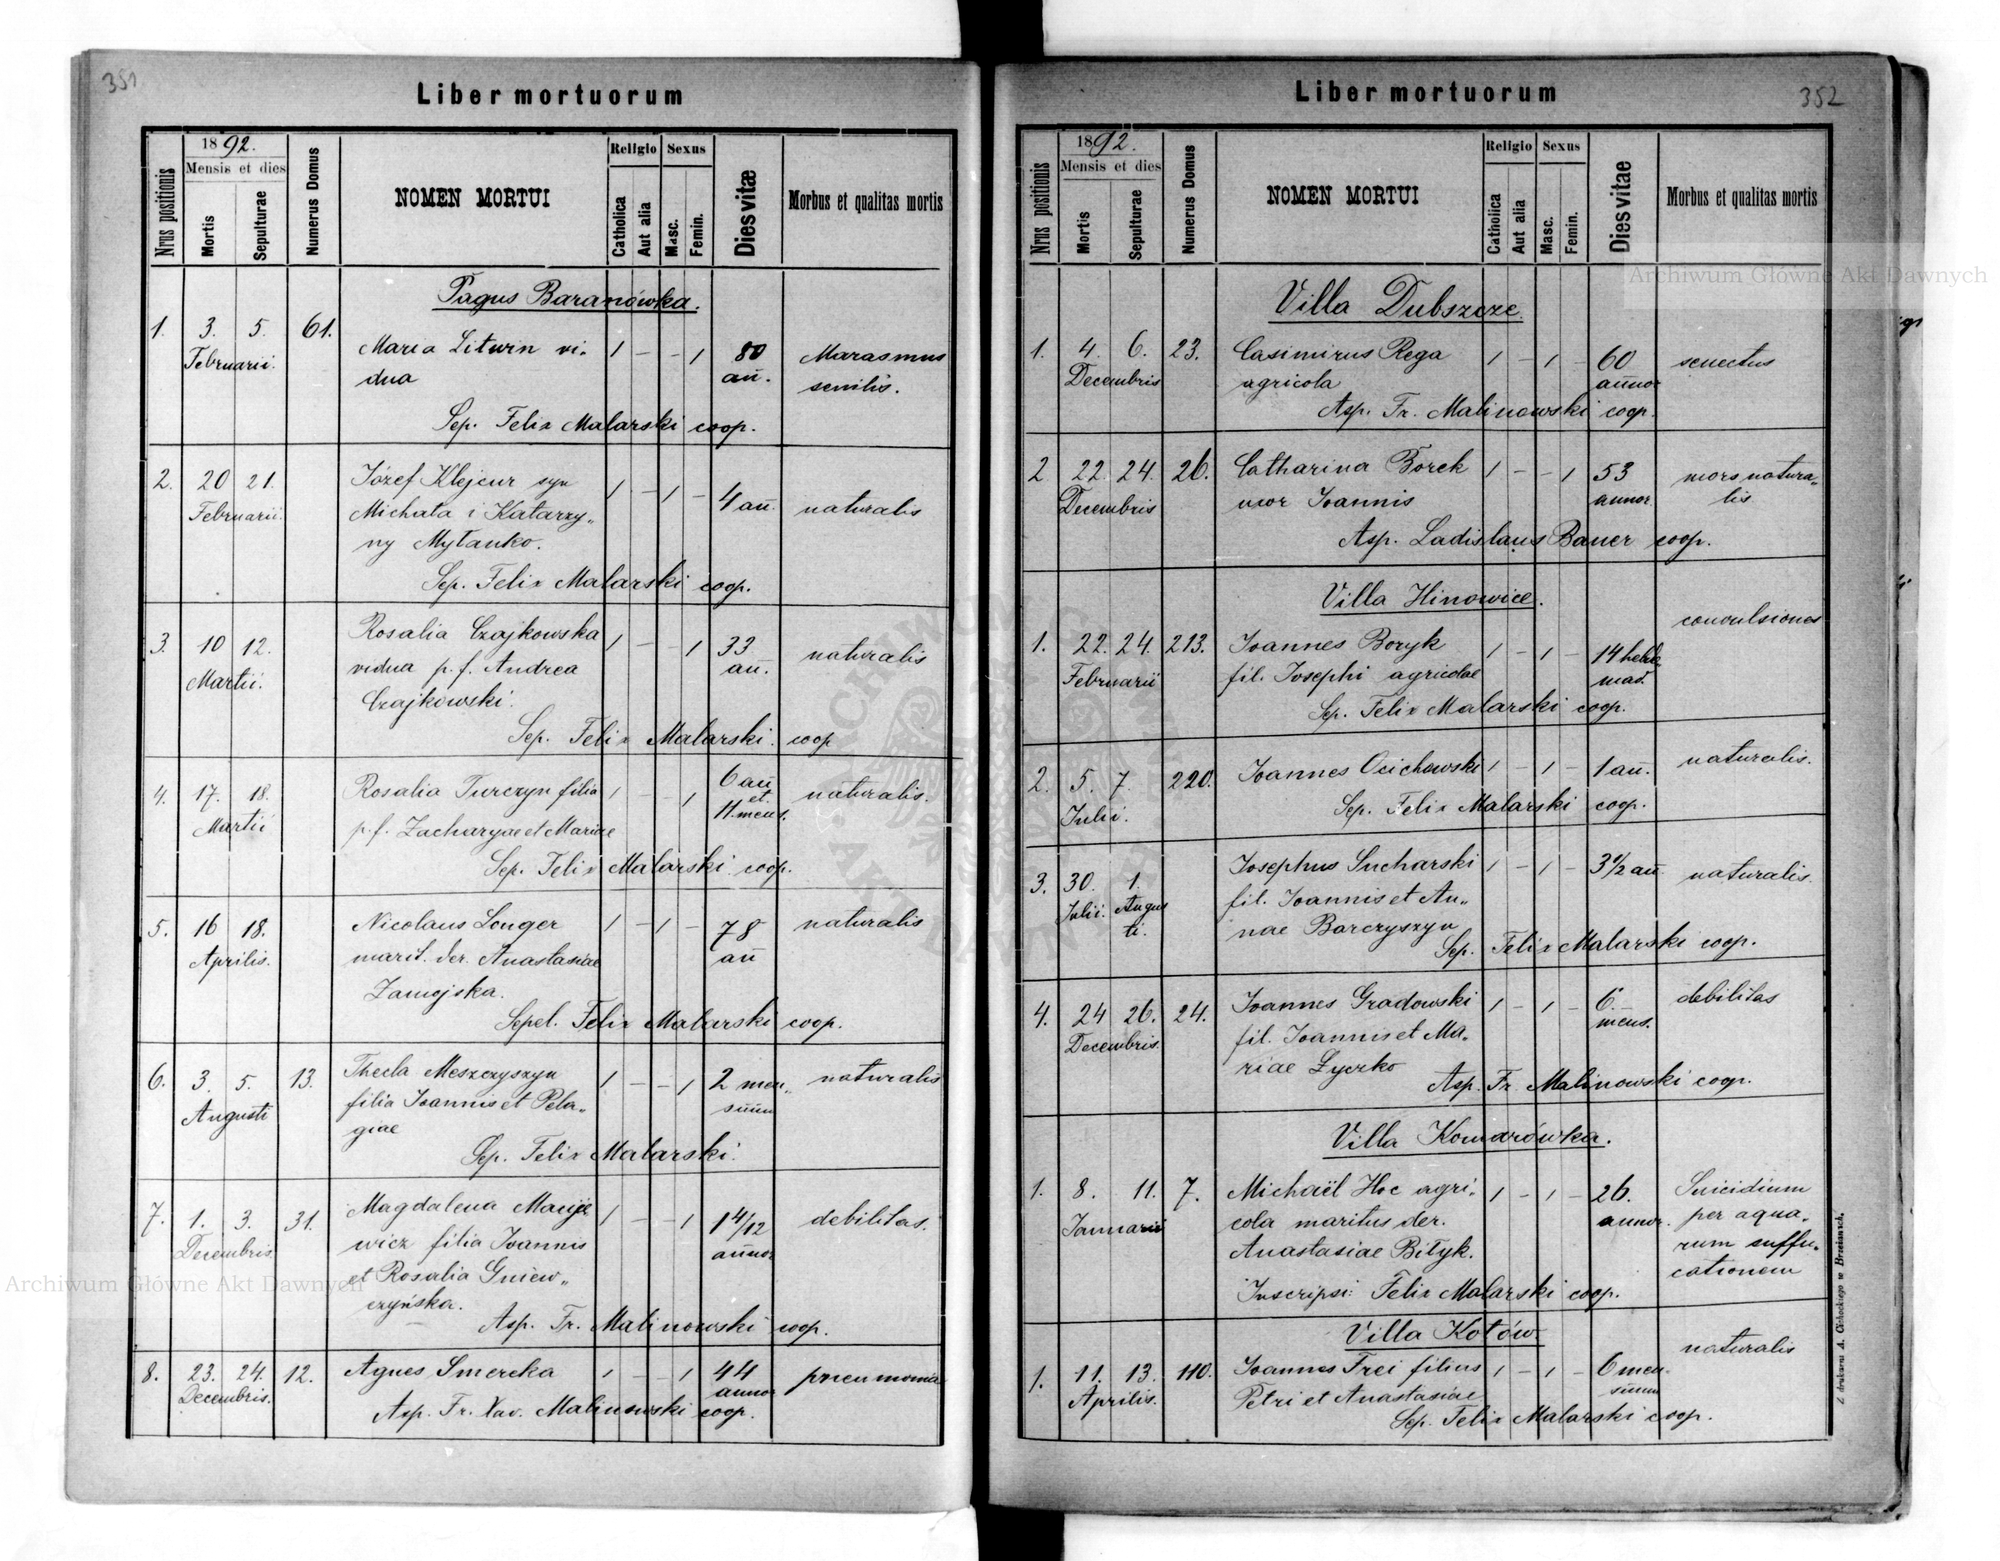 351
Liber mortuorum
Nrus positionis
1892.
Mensis et dies
Mortis
Sepulturae
Numerus Domus
NOMEN MORTUI
Religio
Catholica
Aut alia
Sexus
Masc.
Femin.
Dies vitæ
Morbus et qualitas mortis
Pagus Baranówka.
1. 3. 5. 61. Maria Litwin vi- 1 – – 1 80 Marasmus
Februarii. dua ań. senilis.
Sep. Felix Malarski coop.
2. 20 21. Józef Klejcur syn 1 – 1 – 4 ań. naturalis
Februarii. Michała i Katarzy„
ny Mytanko.
Sep. Felix Malarski coop.
3. 10 12. Rosalia Czajkowska 1 – – 1 33 naturalis
Martii. vidua p. f. Andrea ań.
Czajkowski.
Sep. Felix Malarski. coop
4. 17. 18. Rosalia Turczyn filia 1 – 1 6 ań naturalis.
Martii p. f. Zacharyae et Mariae et 11. mens.
Sep. Felix Malarski. coop.
5. 16 18. Nicolaus Longer 1 – 1 – 78 naturalis
Aprilis. marit. der. Anastasiae ań
Zamojska.
Sepel. Felix Malarski coop.
6. 3. 5. 13. Thecla Meszczyszyn 1 – – 1 2 men„ naturalis
Augusti filia Joannis et Pela„ sium
giae
Sep. Felix Malarski.
7. 1. 3. 31. Magdalena Macije 1 – – 1 1 4/12 debilitas.
Decembris wicz filia Joannis annor
et Rosalia Gniew„
czyńska.
Asp. Fr. Malinowski coop.
8. 23. 24. 12. Agnes Smereka 1 – – 1 44 pneumonia
Decembris. annor
Asp. Fr. Xav. Malinowski coop.
352
Liber mortuorum
Nrus positionis
1892.
Mensis et dies
Mortis
Sepulturae
Numerus Domus
NOMEN MORTUI
Religio
Catholica
Aut alia
Sexus
Masc.
Femin.
Dies vitae
Morbus et qualitas mortis
Villa Dubszcze.
1. 4. 6. 23. Casimirus Rega 1 – 1 – 60 senectus
Decembris agricola annor
Asp. Fr. Malinowski coop.
2 22. 24. 26. Catharina Borek 1 – – 1 53 mors natura„
Decembris uxor Joannis annor. lis
Asp. Ladislaus Bauer coop.
Villa Hinowice.
convulsiones
1. 22. 24. 213. Joannes Boryk 1 – 1 – 14 hebdo
Februarii fil. Josephi agricolae mad.
Sep. Felix Malarski coop.
2. 5. 7. 220. Joannes Ocichowski 1 – 1 – 1 ań. naturalis.
Julii. Sep. Felix Malarski coop.
3. 30. 1. Josephus Sucharski 1 – 1 – 3 1/2 ań naturalis.
Julii. Augus fil. Joannis et An„
ti. nae Barczyszyn
Sep. Felix Malarski coop.
4. 24 26. 24. Joannes Gradowski 1 – 1 – 6. debilitas
Decembris. fil. Joannis et Ma„ mens.
riae Zyczko
Asp. Fr. Malinowski coop.
Villa Komarówka.
1. 8. 11. 7. Michaël Hoc agri„ 1 – 1 – 26. Suicidium
Januarii cola maritus der. annor. per aqua„
Anastasiae Biłyk. rum suffo„
cationem
Inscripsi: Felix Malarski coop.
Villa Kotów
1. 11. 13. 110. Joannes Frei filius 1 – 1 – 6 men- naturalis
Aprilis. Petri et Anastasiae sium
Sep. Felix Malarski coop.
Z drukarni A. Cichockiego w Brzeżanach.
Archiwum Główne Akt Dawnych
Archiwum Główne Akt Dawnych